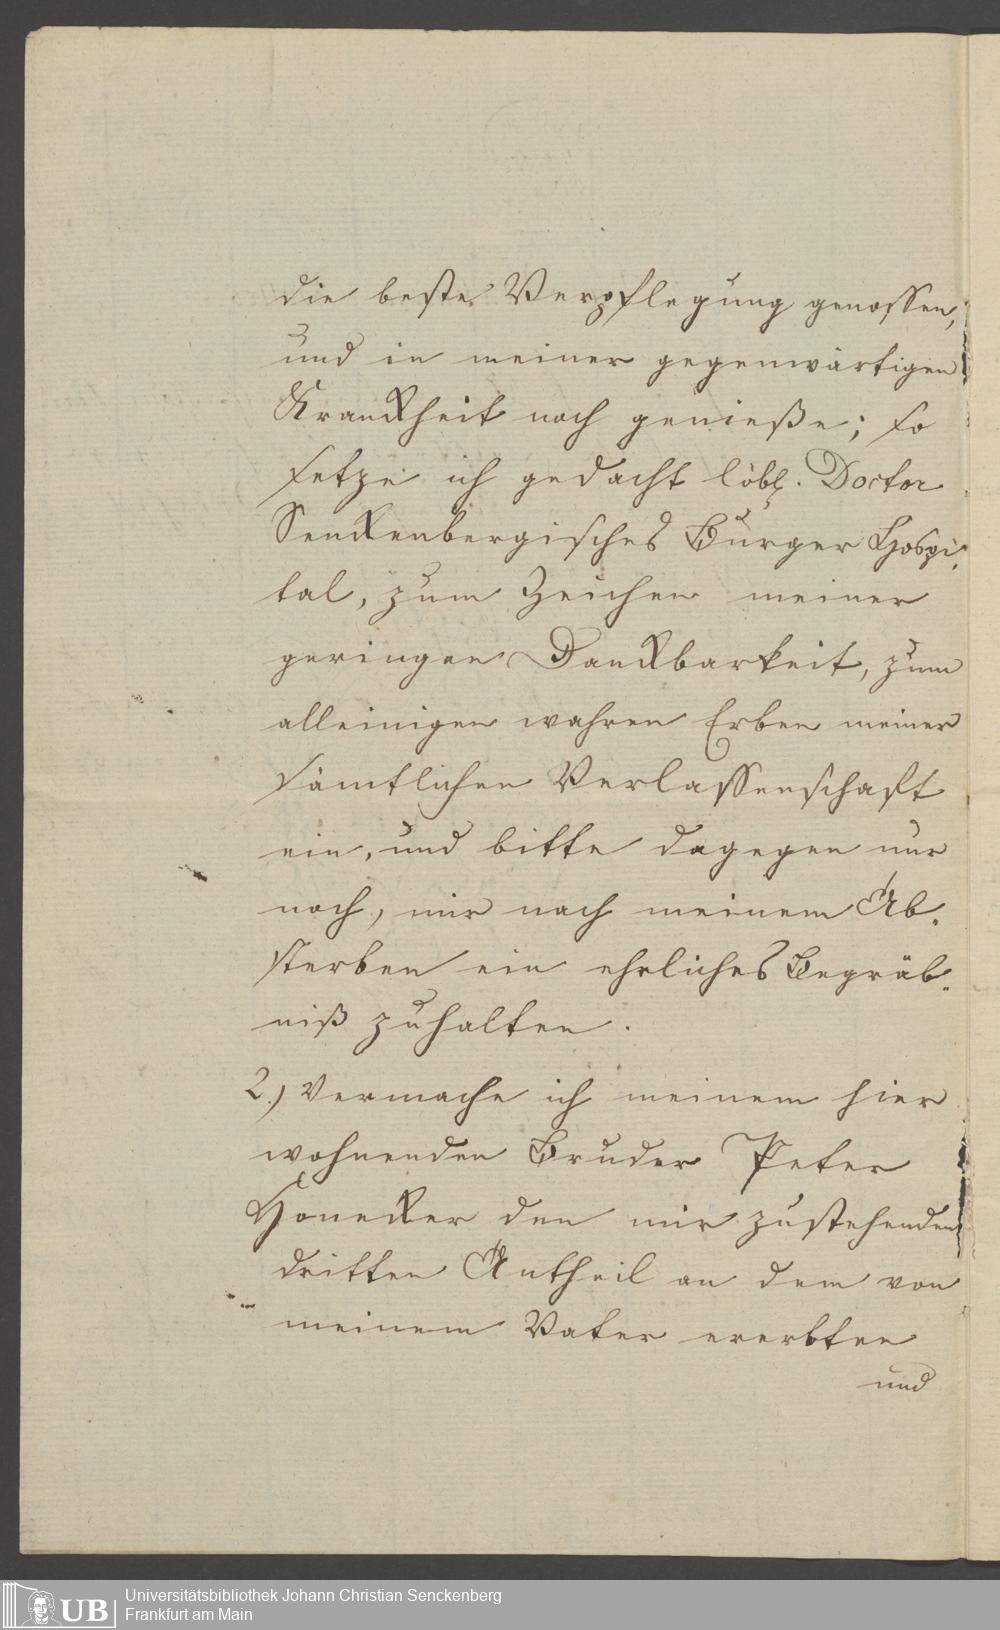 die beste Verpflegung genossen,
und in meiner gegenwärtigen
Kranckheit noch genieße; so
setze ich gedacht löbl. Doctor
Senckenbergisches Burger Hospi-
tal, zum Zeichen meiner
geringen Danckbarkeit, zum
alleinigen wahren Erben meiner
sämtlichen Verlassenschaft
ein, und bitte dagegen nur
noch, mir nach meinem Ab-
sterben ein ehrliches Begräb-
niß zuhalten.
2.) Vermache ich meinem hier
wohnenden Bruder Peter
Hönecker den mir zustehenden
dritten Antheil an dem von
meinem Vater ererbten
und
UB
Universitätsbibliothek Johann Christian Senckenberg
Frankfurt am Main